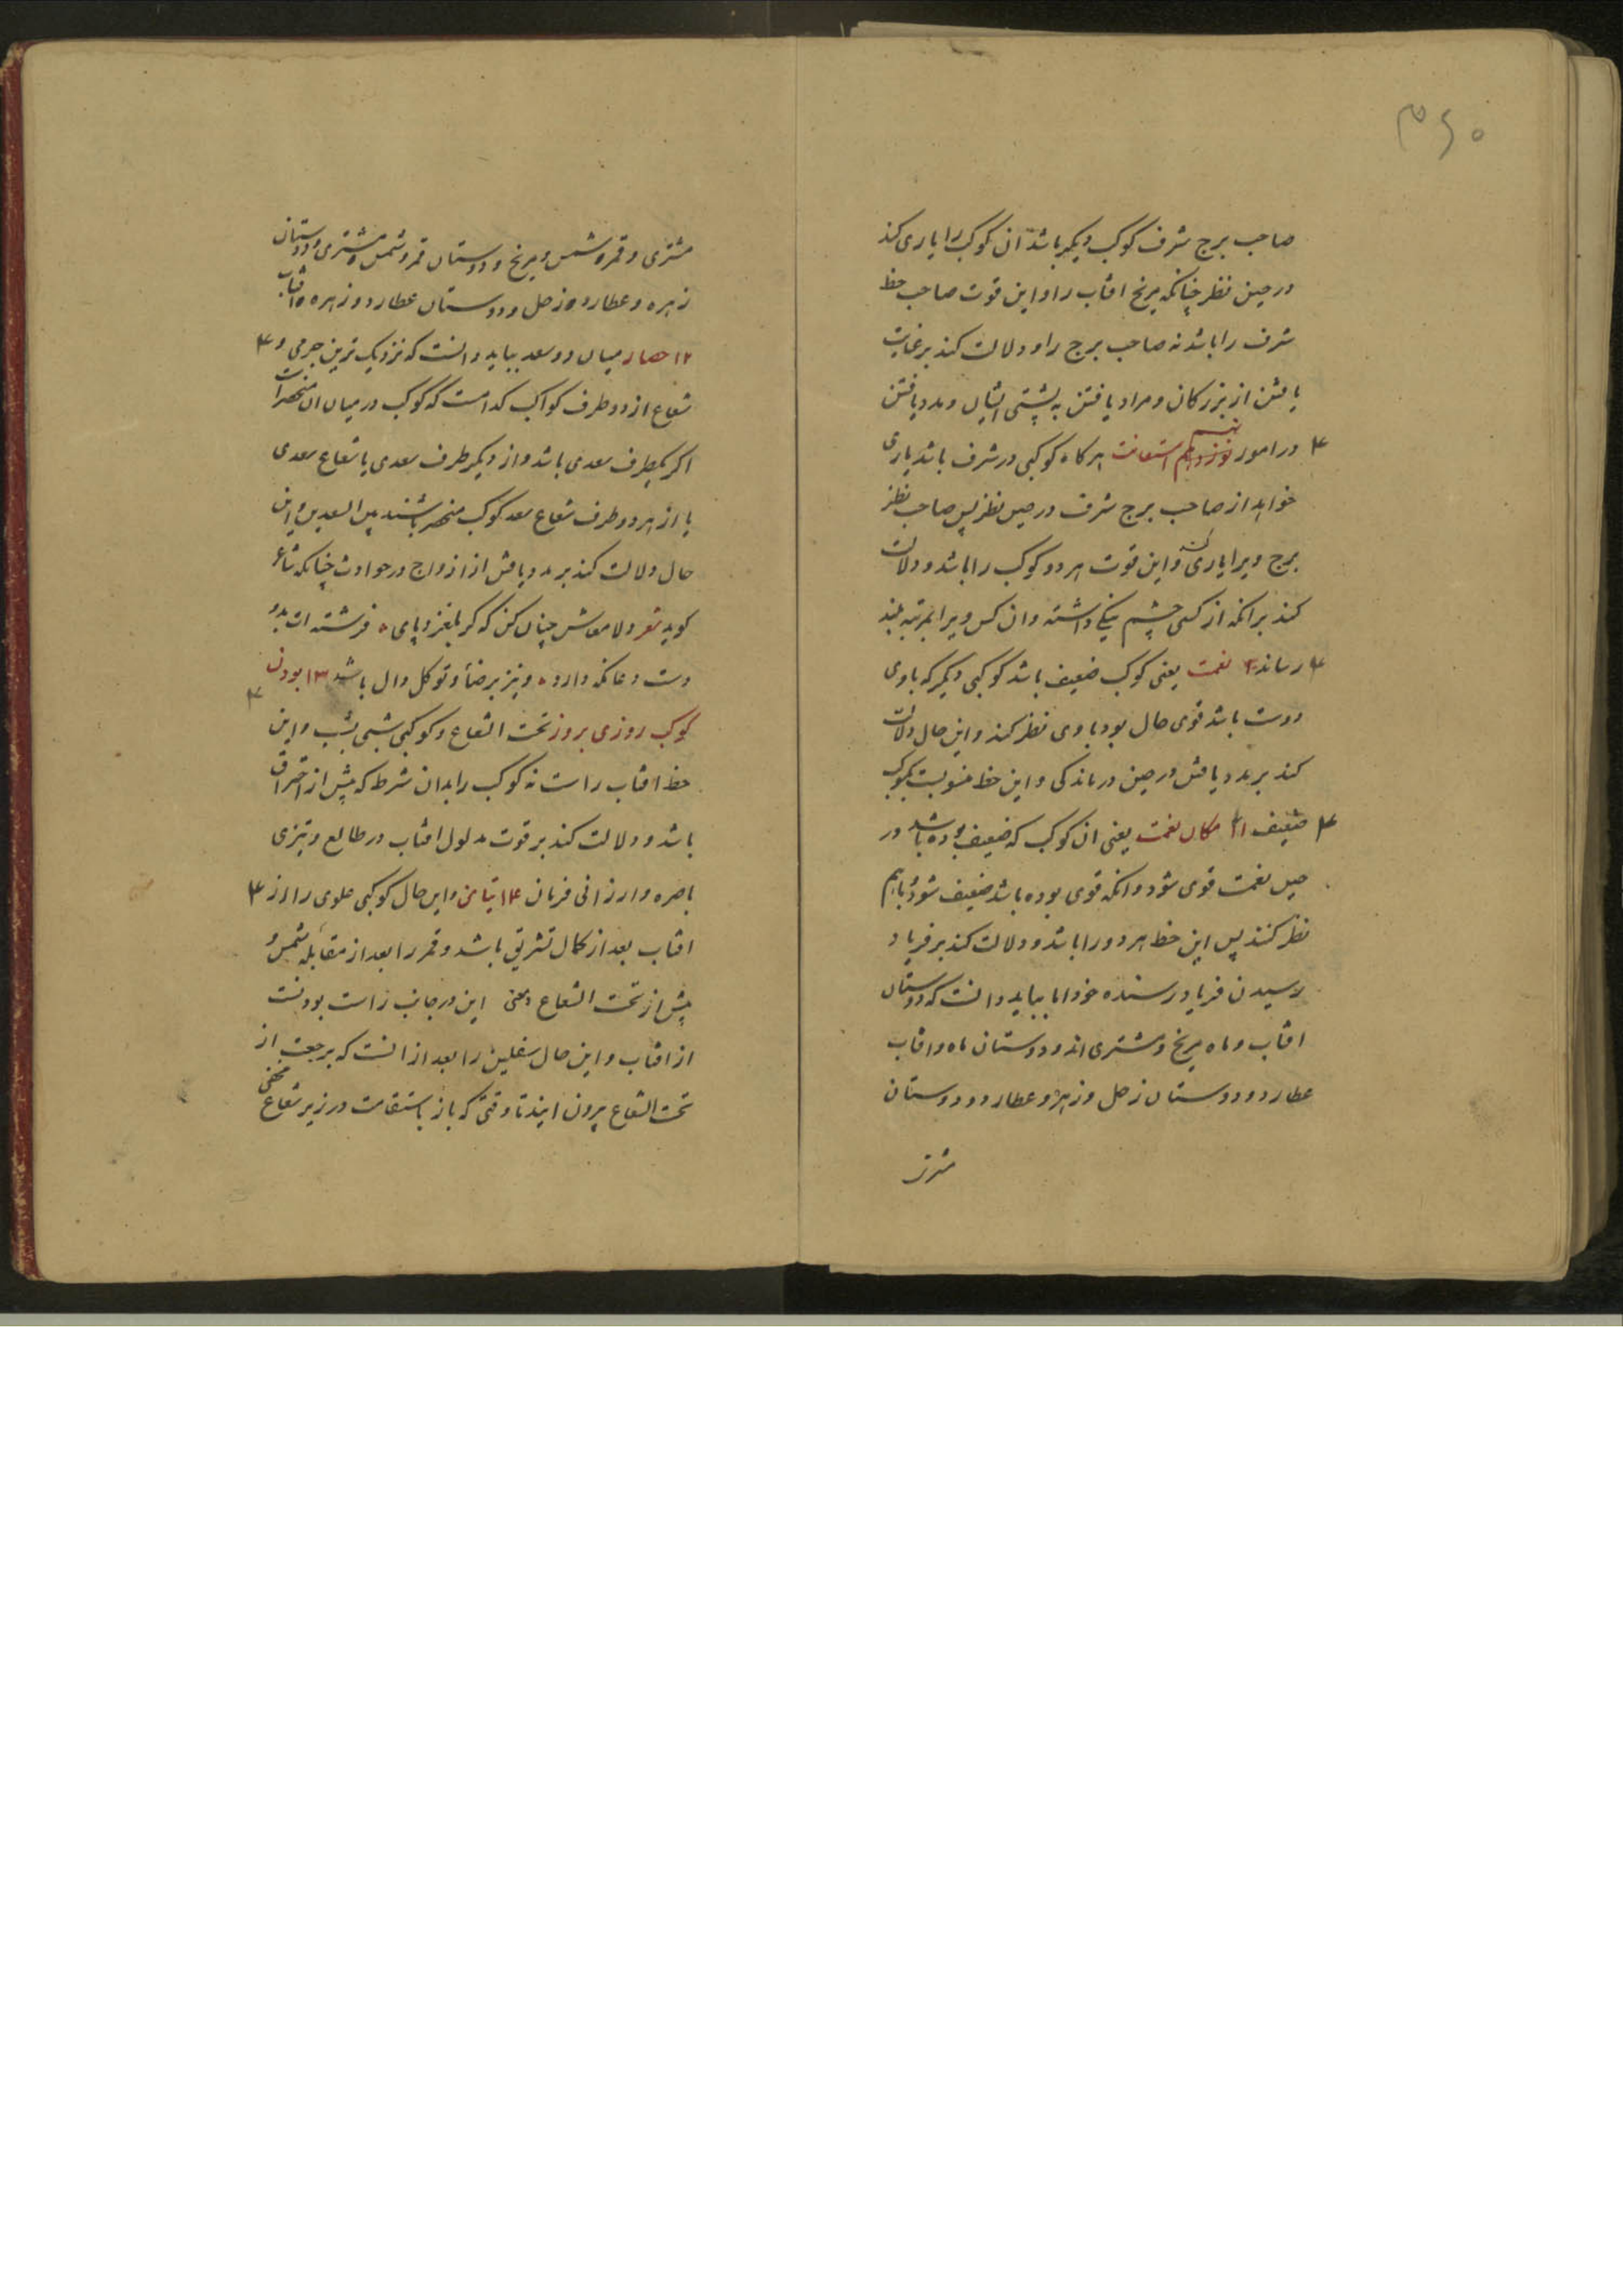 ۳۶۰
صاحب برج شرف کوکب دیگر باشد ان کوکب را یاری کند
در حین نظر چنانکه مریخ افتاب را و این قوت صاحب حظ
شرف را باشد نه صاحب برج را و دلالت کند بر عنایت
یافتن از بزرکان و مراد یافتن به پشتی ایشان و مدد یافتن
در امور نهم استعانت هر کاه کوکبی در شرف باشد یاری
خواهد از صاحب برج شرف در حین نظر پس صاحب
برج ویرا یاری کند و این قوت هر دو کوکب را باشد و دلالت
کند بر انکه از کسی چشم نیکی داشته و ان کس ویرا بمرتبه بلند
رساند ۱۰ نعمت یعنی کوکب ضعیف باشد کوکبی دیگر که با وی
دوست باشد قوی حال بود با وی نظر کند و این حال دلالت
کند بر مدد یافتن در حین درماندکی و این حظ منسوبست بکوکب
ضعیف ۱۱ مکان نعمت یعنی ان کوکب که ضعیف بوده باشد در
حین نعمت قوی شود و انکه قوی بوده باشد ضعیف شود و باهم
نظر کنند پس این حظ هر دو را باشد و دلالت کند بر فریاد
رسیدن فریاد رسنده خود اما بباید دانست که دوستان
افتاب و ماه مریخ و مشتری اند و دوستان ماه و افتاب
عطارد و دوستان زحل و زهره و عطارد و دوستان
مشتری
مشتری و قمر و شمس و مریخ و دوستان قمر و شمس و مشتری و دوستان
زهره و عطارد و زحل و دوستان عطارد و زهره و افتاب
۱۲ حصار میان دو سعد بباید دانست که نزدیک ترین جرمی و
شعاع از دو طرف کواکب کدامست که کوکب در میان ان منحصر است
اکر یکطرف سعدی باشد و از دیگر طرف سعدی یا شعاع سعدی
یا از هر دو طرف شعاع سعد کوکب منحصر باشند بین السعدین و این
حال دلالت کند بر مدد یافتن از ازواج در حوادث چنانکه شاعر
کوید شعر دلا معاش چنان کن که کر بلغزد پای فرشته ات بدو
دست دعا نکه دارد و نیز بر رضا و توکل دال باشد ۱۳ بودن
کوکب روزی بروز تحت الشعاع و کوکبی شبی بشب و این
حظ افتاب راست نه کوکب را بدان شرط که پیش از احتراق
باشد و دلالت کند بر قوت مدلول افتاب در طالع و تیزی
باصره و ارزانی فرمان ۱۴ تیامن و این حال کوکبی علوی را از
افتاب بعد از کمال تشریق باشد و قمر را بعد از مقابله شمس و
پیش از تحت الشعاع یعنی این در جانب راست بودنست
از افتاب و این حال سفلین را بعد از انست که برجعت از
تحت الشعاع بیرون ایند تا وقتی که باز باستقامت در زیر شعاع مخفی